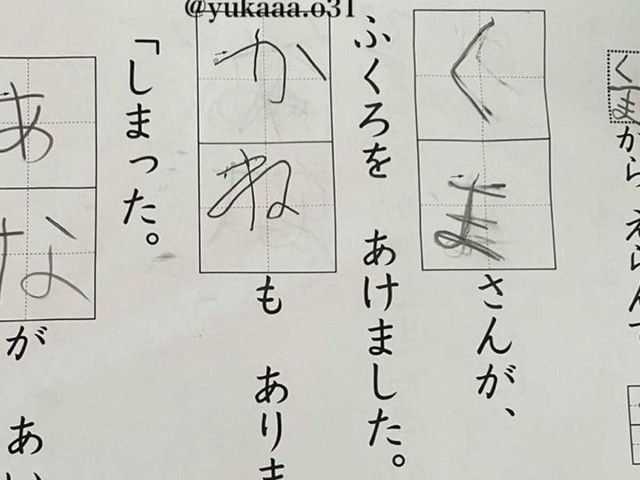 @yukaaa.o31
くま
から えらんで
くまさんが、
ふくろを あけました。
かねも ありま
「しまった。
あなが あい